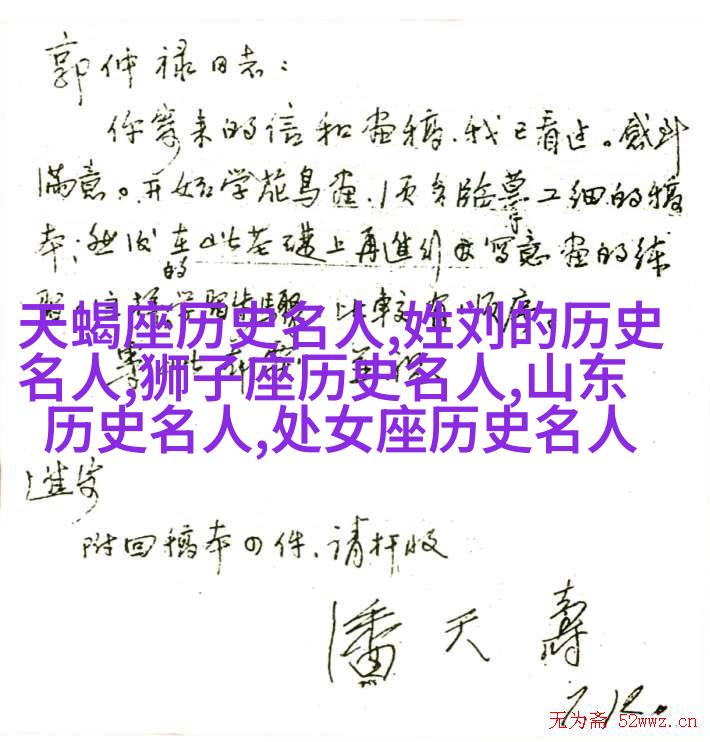 郭仲禄同志：
你寄来的信和画稿，我已看过。感到
满意。开始学花鸟画，须多临摹工细的稿
本；然后在此基础上再进行写意画的练
习，这样的学习步骤，比较有顺序。
专此
天蝎座历史名人,姓刘的历史
名人,狮子座历史名人,山东
历史名人,处女座历史名人
进安
附回稿本四件、请检收
潘天寿
7.12.
无为斋 52wwz.cn